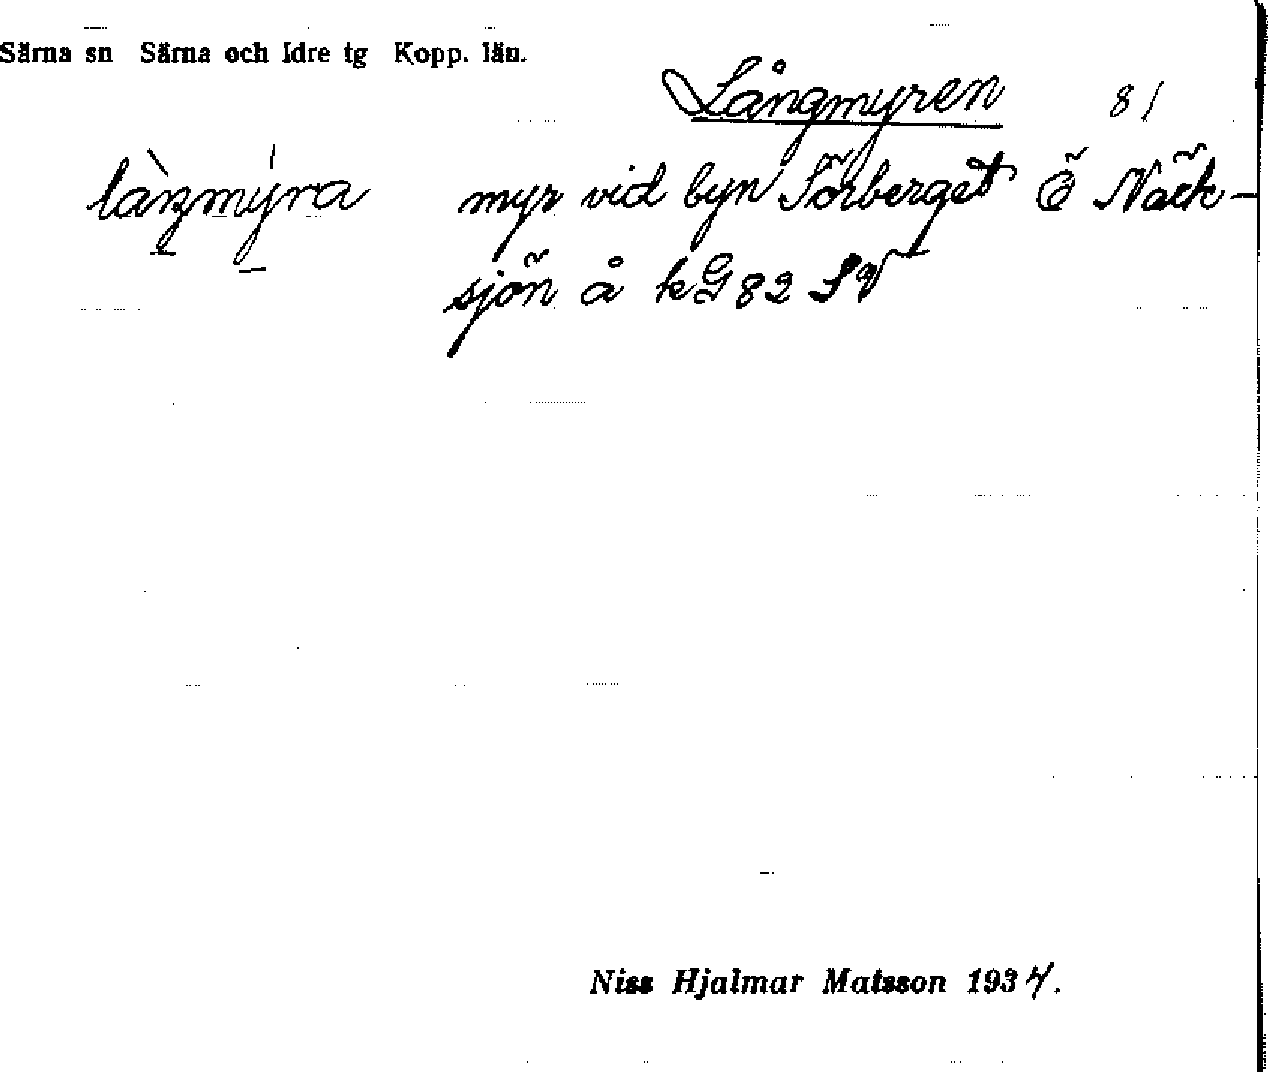 Särna sn Särna och Idre tg Kopp. län.
Långmyren 81
làŋmýra myr vid byn Sörberget Ö Näck-
sjön å kG 82 SV
Niss Hjalmar Matsson 1934.